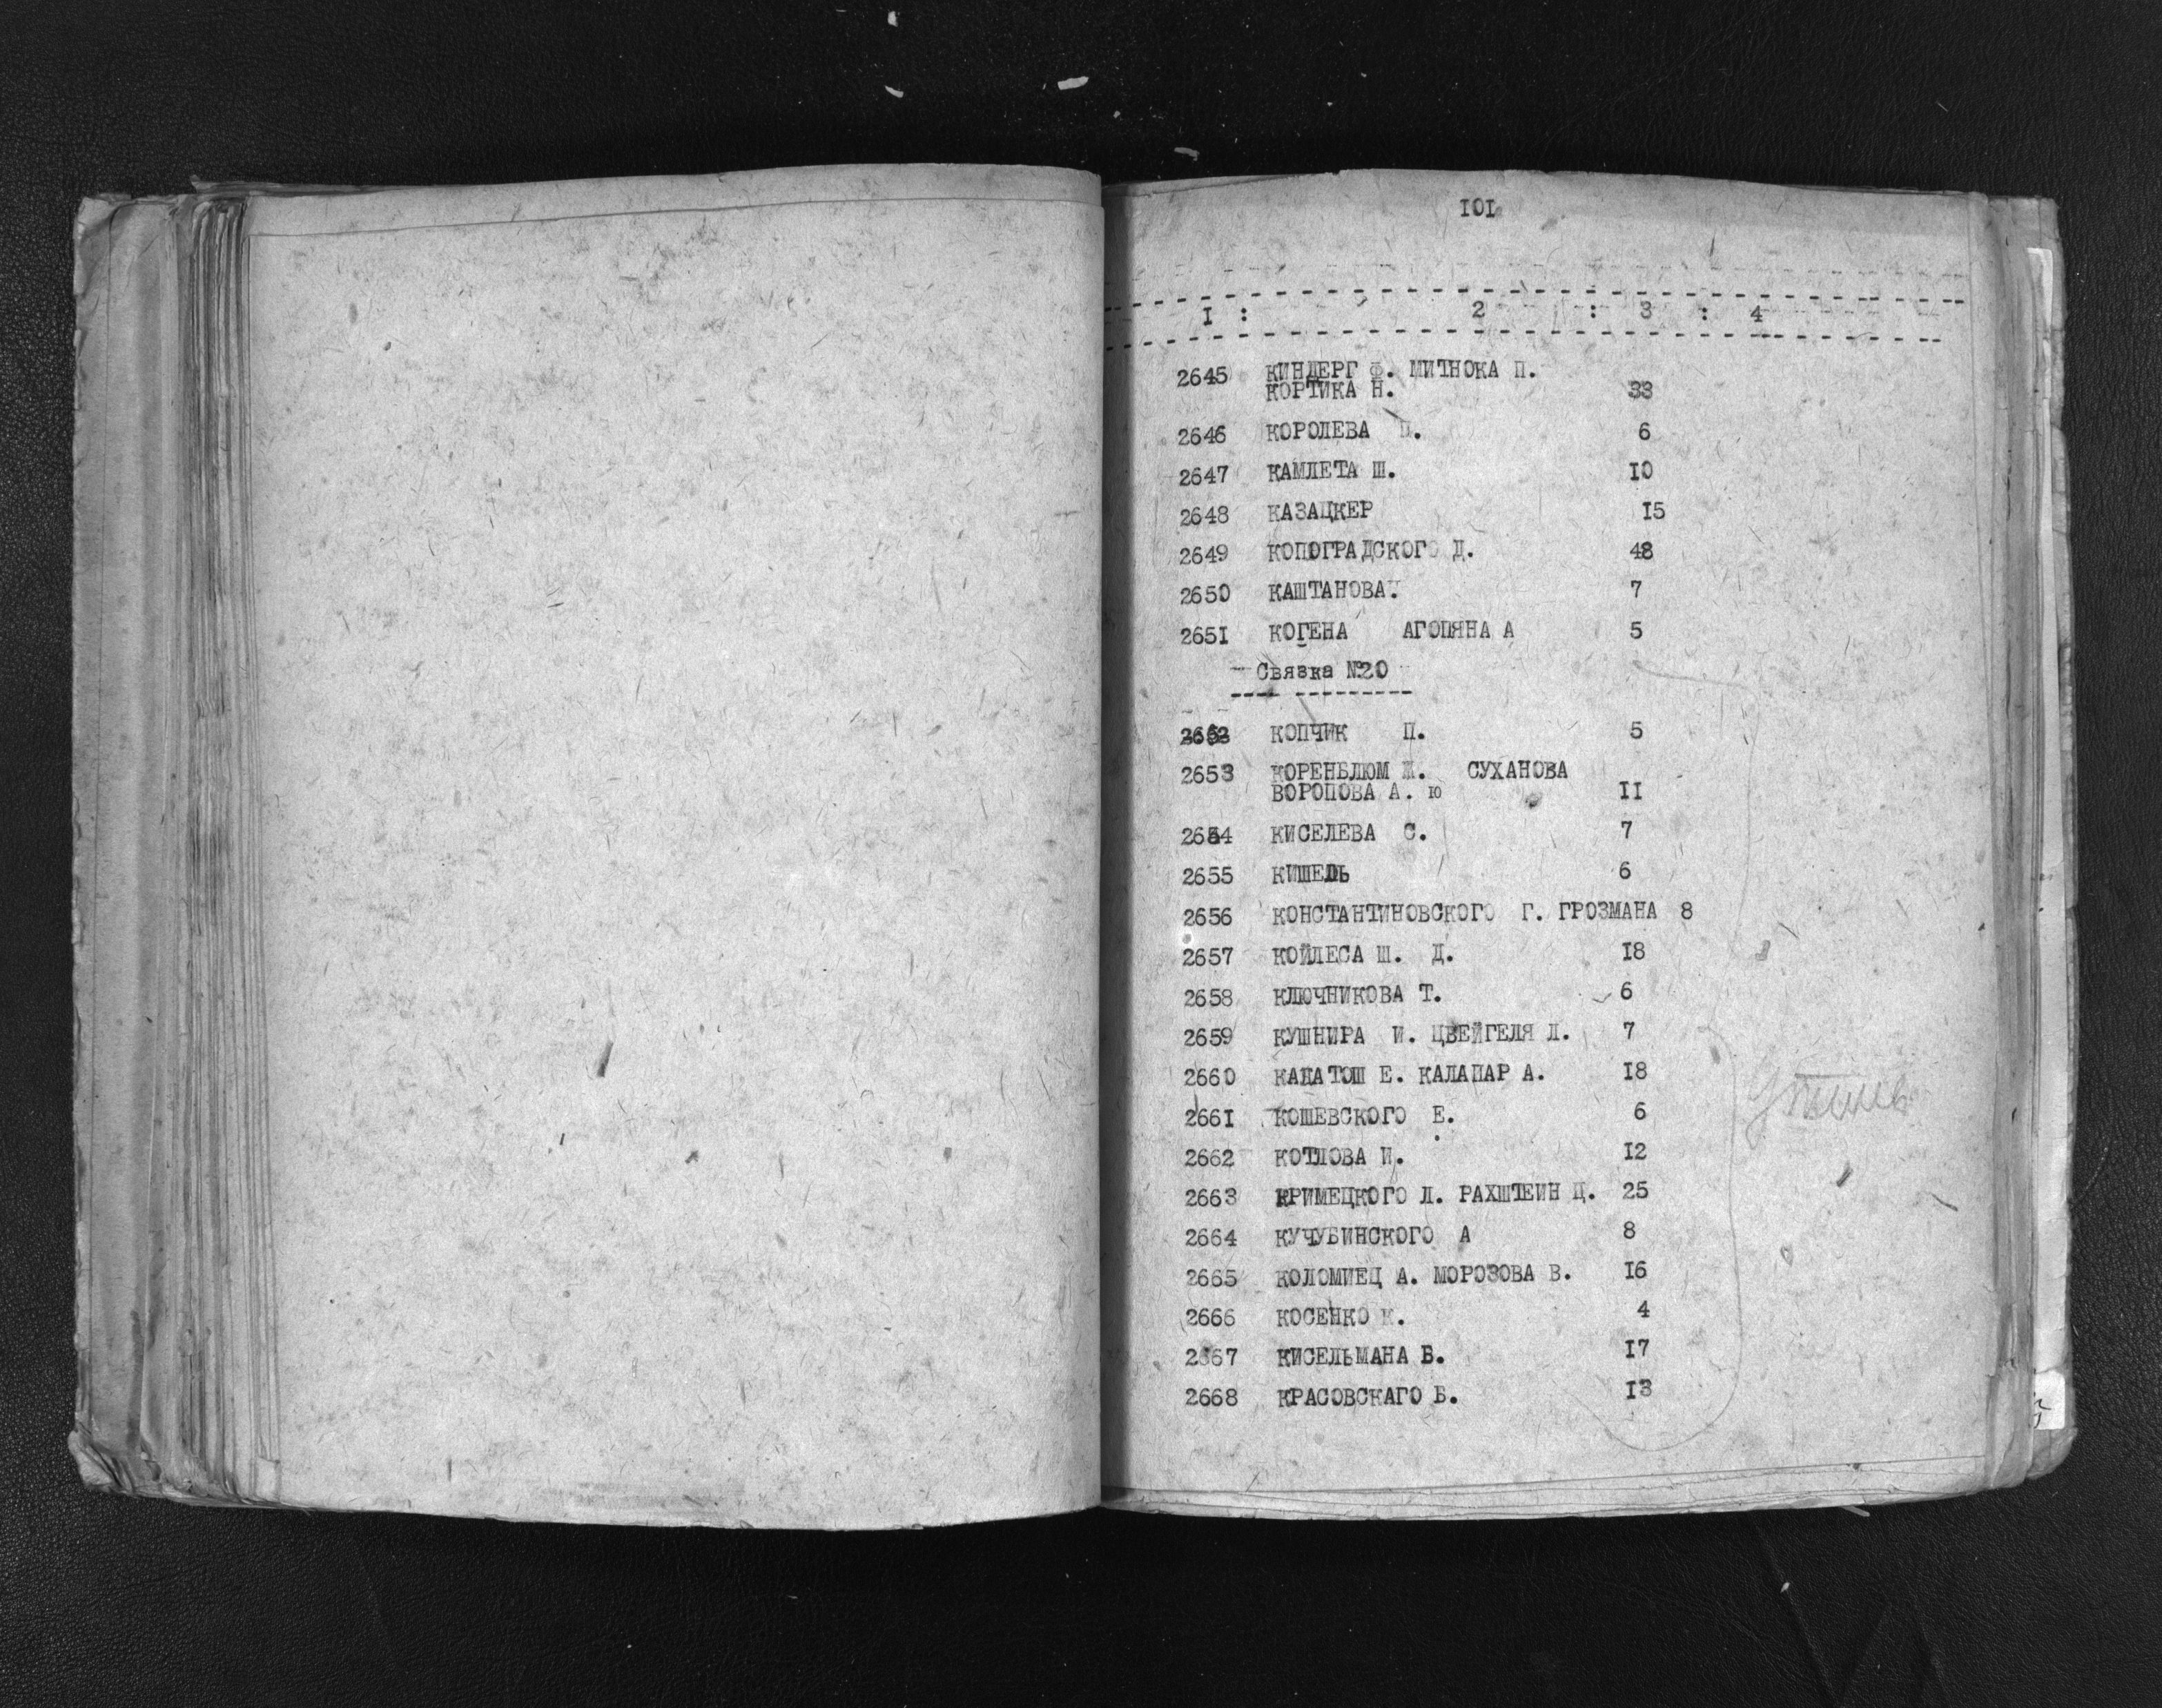 101
1 : 2 : 3 : 4
2645 КИНДЕРГ Ф. МИТНОКА П.
КОРТИКА Н. 33
2646 КОРОЛЕВА П. 6
2647 КАМЛЕТА Ш. 10
2648 КАЗАЦКЕР 15
2649 КОПОГРАДСКОГО Д. 48
2650 КАШТАНОВА. 7
2651 КОГЕНА АГОПЯНА А 5
Связка №20
2652 КОПЧИК П. 5
2653 КОРЕНБЛЮМ Ж. СУХАНОВА
ВОРОПОВА А. ю 11
2654 КИСЕЛЕВА С. 7
2655 КИШЕЛЬ 6
2656 КОНСТАНТИНОВСКОГО Г. ГРОЗМАНА 8
2657 КОЙЛЕСА Ш. Д. 18
2658 КЛЮЧНИКОВА Т. 6
2659 КУШНИРА И. ЦВЕЙГЕЛЯ Л. 7
2660 КАЛАТОШ Е. КАЛАПАР А. 18
2661 КОШЕВСКОГО Е. 6
2662 КОТЛОВА И. 12
2663 КРИМЕЦКОГО Л. РАХШТЕИН Ц. 25
2664 КУЧУБИНСКОГО А 8
2665 КОЛОМИЕЦ А. МОРОЗОВА В. 16
2666 КОСЕНКО К. 4
2667 КИСЕЛЬМАНА В. 17
2668 КРАСОВСКАГО Б. 13